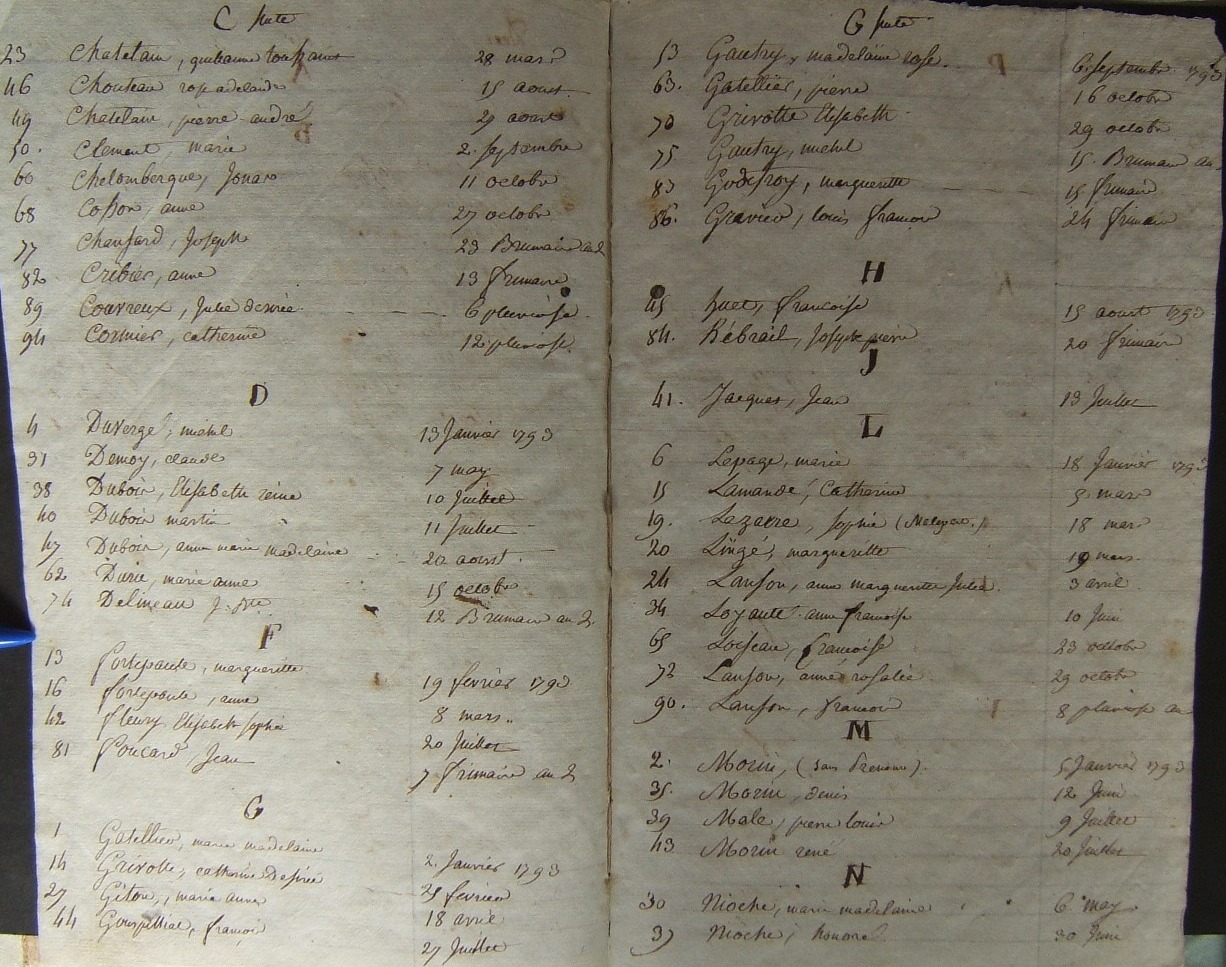 C suite
23 Chatelain, guillaume toussaint 28 mars
46 Chouteau rose adelaide 15 aoust
49 Chatelain, pierre andré 29 aoust
50. Clement, marie 2. septembre
60 Chelomberque, Jonas 11 octobre
68 Cosson, anne 27 octobre
77 Chaufard, Joseph 23 Brumaire an 2
82 Cribier, anne 13 frimaire
89 Couvreux, Julie desirée 6 pluviose
94 Cormier, catherine 12 pluviose
D
4 Duvergé, michel 13 Janvier 1793
31 Demoy, claude 7 may
38 Dubois, Elisabeth reine 10 Juillet
40 Dubois martin 11 Juillet
47 Dubois, anne marie madelaine 20 aoust
62 marie anne 15 octobre
74 Delineau J. Bte 12 Brumaire an 2.
F
13 fortepaule, margueritte 19 février 1793
16 fortepaule, anne 8 mars
42 fleury Elisabeth sophie 20 Juillet
81 foucard, Jean 7 frimaire an 2
G
1 Gatellier, marie madelaine 2. Janvier 1793
14 Grivotte, catherine Desirée 25 fevrier
27 Giton, marie anne 18 avril
44 françois 27 Juillet
G suite
53 Gautry, madelaine rose 6 septembre 1793
63. Gatellier, pierre 16 octobre
70 Grivotte Elisabeth 29 octobre
75 Gautry, michel 15. Brumaire an
83 Godefroy, margueritte 15 frimaire
86. Gravier, louis françois 24 frimaire
H
45 huet, francoise 15 aoust 1793
84. Hébrail, Joseph pierre 20 frimaire
J
41. Jacques, Jean 13 Juillet
L
6 Lepage, marie 18 Janvier 1793
15 Lamandé, Catherine 5 mars
19. Lazarre, sophie 18 mars
20 Lingé, margueritte 19 mars
24 Lanson, anne margueritte Julie 3 avril
34 Loyauté anne francoise 10 Juin
65 Loiseau, francoise 23 octobre
72 Lanson, anne rosalie 29 octobre
90. Lanson, francois 8 pluviose an
M
2. Morin, (sans Prenom). 5 Janvier 1793
35. Morin, denis 12 Juin
39 Male, pierre louis 9 Juillet
43 Morin rené 20 Juillet
N
30 Nioche, marie madelaine 6 may
37 Nioche, honoré 30 Juin